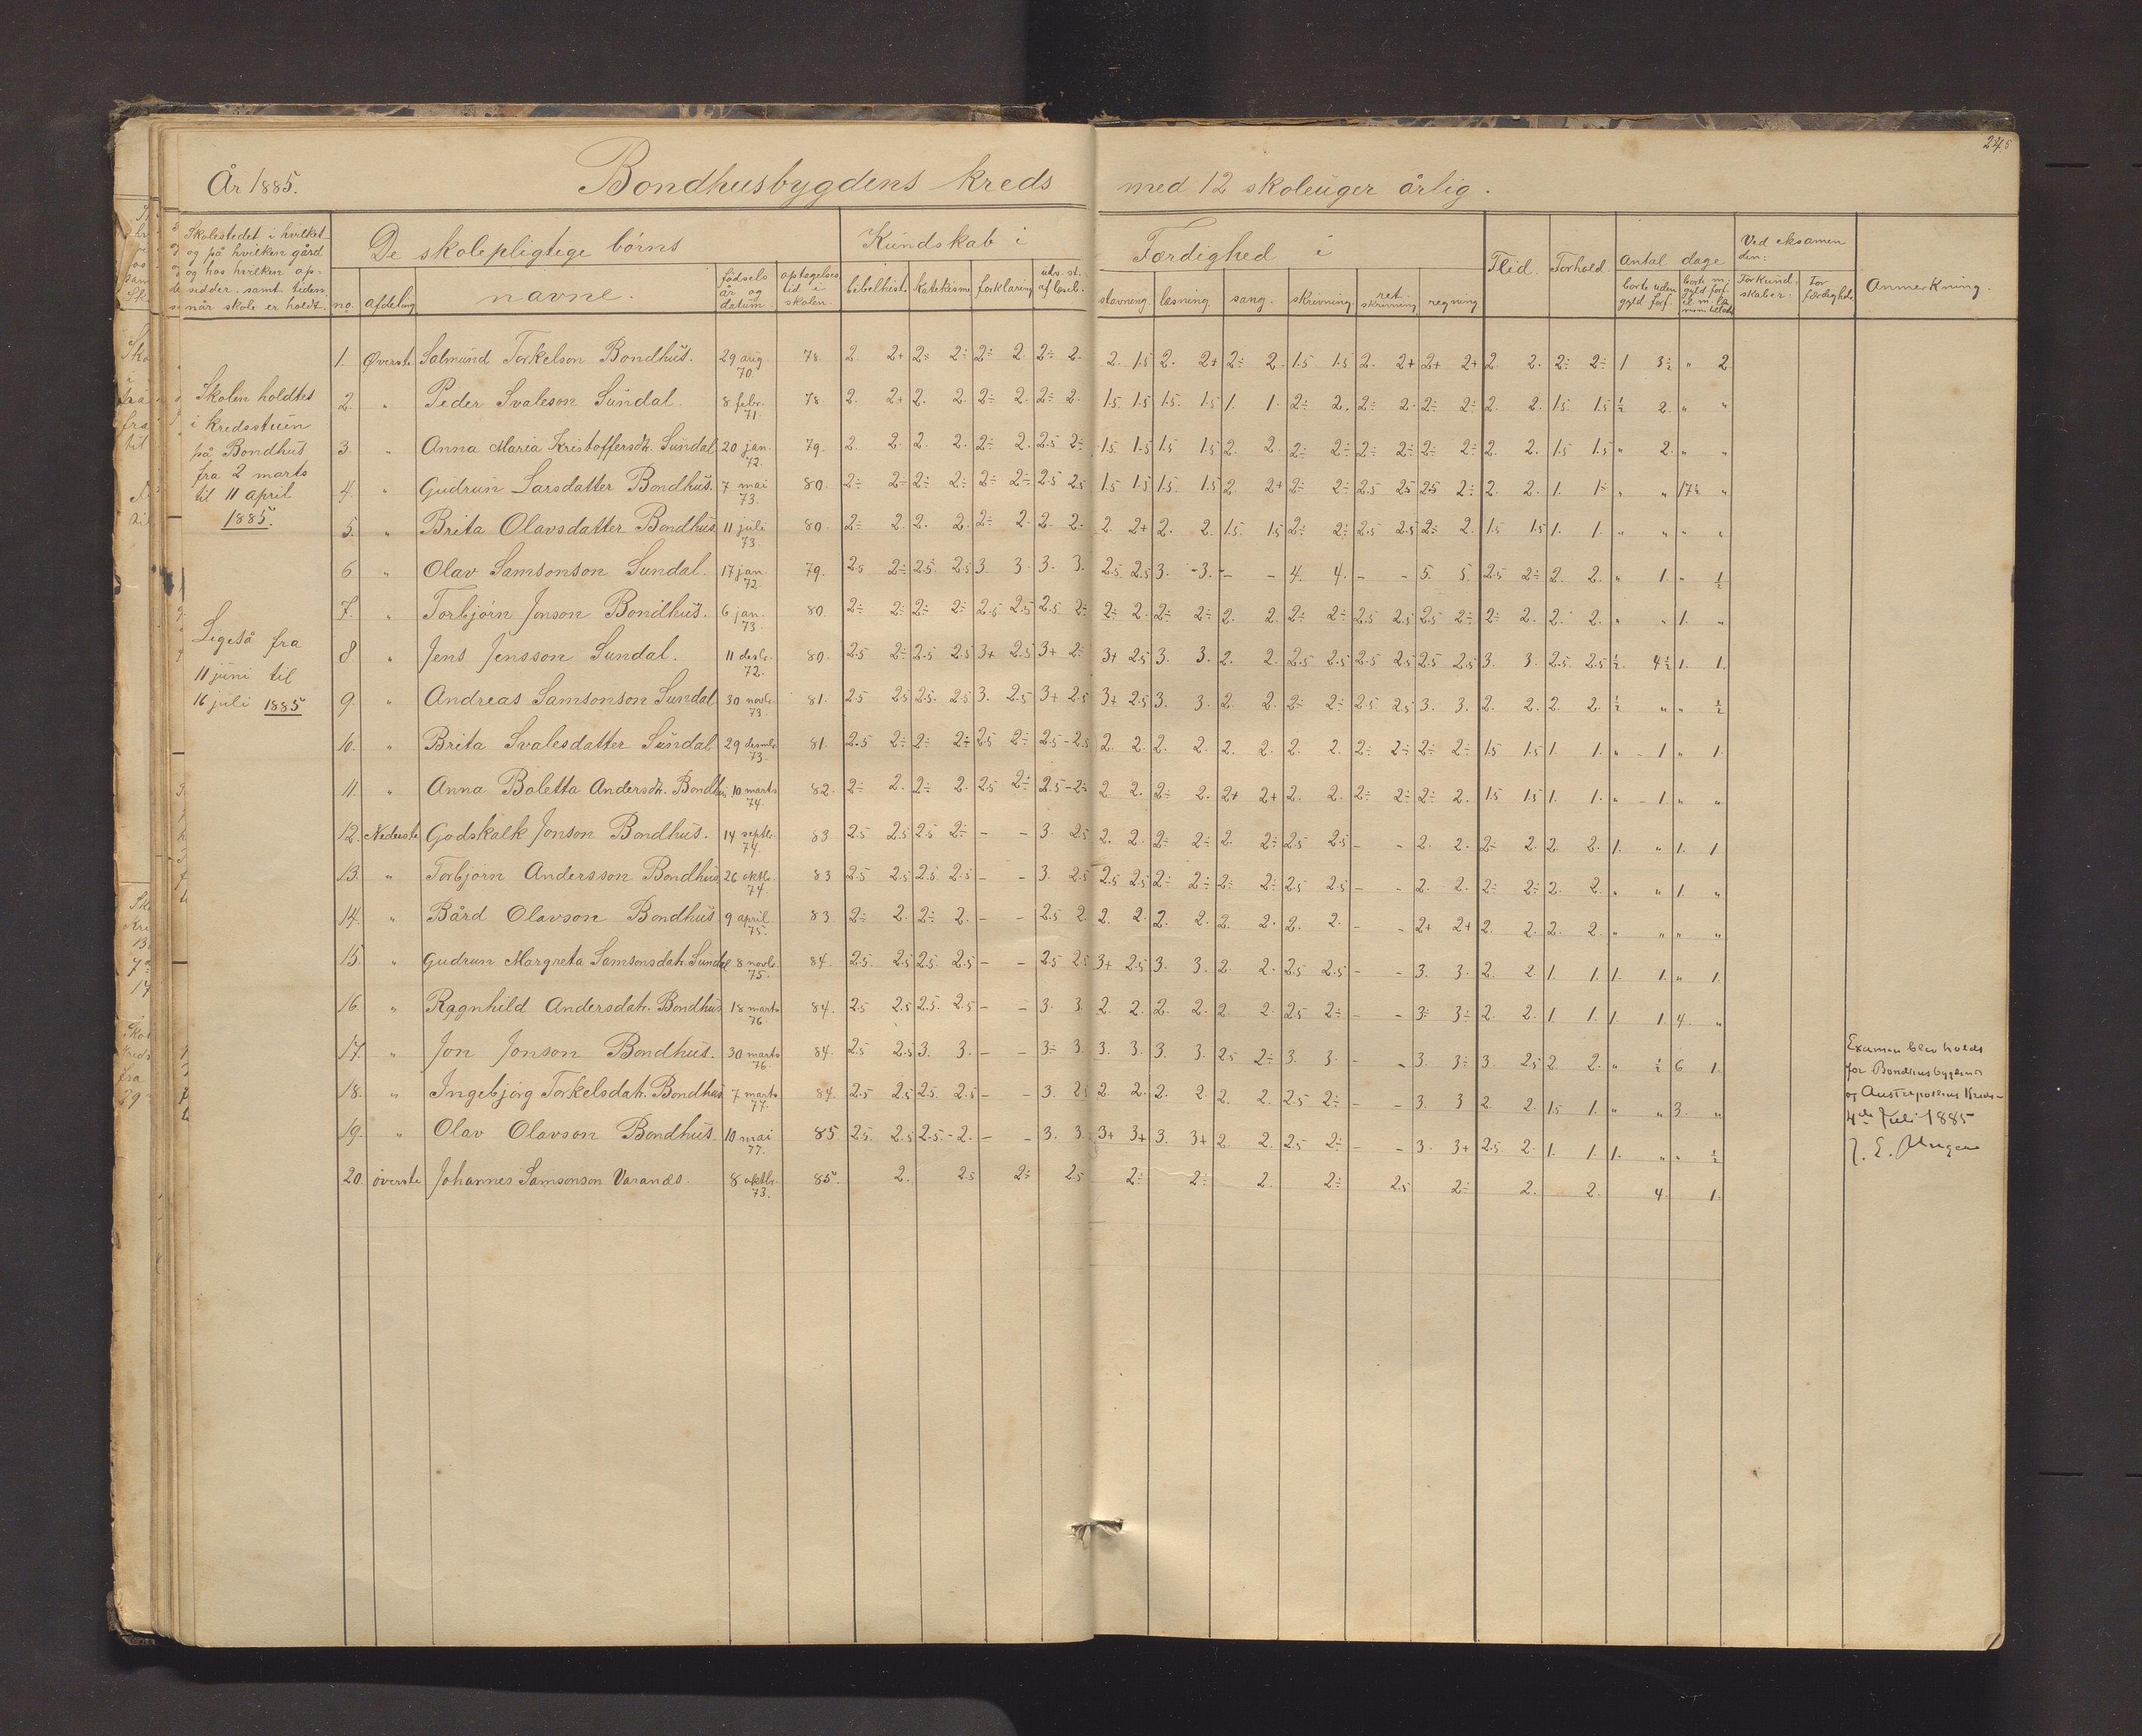 245
År 1885. Bondhusbygdens kreds med 12 skoleuger årlig.
Skolestedet i hvilket og på hvilken gård og hos hvilken op- sidder, samt tiden når skole er holdt.
De skolepligtige börns
no. afdeling navne. födsels år og datum. optagelses tid i skolen.
Kundskab i
bibelhist. katekisme forklaring udv. st. af læseb.
Færdighed i
stavning læsning sang. skrivning ret skrivning regning
Flid. Forhold. Antal dage
borte uden gyld forf. borte m. gyld. forf.
Ved eksamen den:
For kund- skaber. For færdighed
Anmerkning.
Skolen holdtes
i kredsstuen
på Bondhus
fra 2 marts
til 11 april
1885.
Ligeså fra
11 juni til
16 juli 1885
1. Øverste Salmund Torkelson Bondhus. 29 aug. 70. 78. 2. 2+ 2÷ 2÷ 2÷ 2. 2÷ 2. 2. 1.5 2. 2+ 2÷ 2. 1.5 1.5 2. 2+ 2+ 2+ 2. 2. 2÷ 2÷ 1 3½ " 2
2. " Peder Svaleson Sundal. 8 febr. 71. 78. 2. 2+ 2. 2. 2÷ 2. 2÷ 2. 1.5 1.5 1.5. 1.5 1. 1. 2÷ 2. 2÷ 2. 2÷ 2÷ 2. 2. 1.5 1.5 ½ 2. " "
3. " Anna Maria Kristoffersdt. Sundal 20 jan. 72. 79. 2. 2. 2. 2. 2÷ 2. 2.5 2÷ 1.5 1.5 1.5 1.5 2. 2. 2÷ 2÷ 2÷ 2÷ 2÷ 2÷ 2. 2. 1.5 1.5 " 2. " "
4. " Gudrun Larsdatter Bondhus. 7 mai 73. 80. 2÷ 2÷ 2÷ 2÷ 2÷ 2÷ 2.5 2.5 1.5 1.5 1.5. 1.5 2. 2+ 2÷ 2÷ 2.5 2.5 2.5 2÷ 2. 2. 1. 1÷ " " 17½ "
5. " Brita Olavsdatter Bondhus 11 juli 73. 80. 2÷ 2. 2. 2. 2÷ 2. 2. 2. 2. 2+ 2. 2. 1.5. 1.5 2÷ 2÷ 2.5 2.5 2÷ 2. 1.5 1.5 1. 1. " " " "
6 " Olav Samsonson Sundal. 17 jan. 72. 79. 2.5 2÷ 2.5. 2.5 3. 3. 3. 3. 2.5. 2.5 3. -3. - - 4. 4. - - 5. 5. 2.5 2÷ 2. 2. " 1. " ½
7. " Torbjörn Jonson Bondhus. 6 jan. 73. 80. 2÷ 2÷ 2÷ 2÷ 2.5 2.5 2.5 2÷ 2÷ 2. 2÷ 2÷ 2. 2. 2÷ 2÷ 2.5 2.5 2.5 2÷ 2÷ 2. 2. 2. " " 1. "
8. " Jens Jensson Sundal. 11 desbr. 72. 80. 2.5 2÷ 2.5 2.5 3+ 2.5 3+ 2÷ 3+ 2.5 3. 3. 2. 2. 2.5 2.5 2.5 2.5 2.5 2.5 3. 3. 2.5. 2.5 ½ 4½ 1. 1.
9. " Andreas Samsonson Sundal 30 novbr. 73. 81. 2.5 2.5 2.5. 2.5 3. 2.5 3+ 2.5 3+ 2.5 3. 3. 2. 2. 2÷ 2÷ 2.5 2.5 3. 3. 2. 2. 2. 2. ½ " " ½
10. " Brita Svalesdatter Sundal 29 desmbr. 73. 81. 2.5 2÷ 2÷ 2÷ 2.5 2÷ 2.5-2.5 2. 2. 2. 2. 2. 2. 2. 2. 2÷ 2÷ 2÷ 2÷ 1.5 1.5 1. 1. " 1 " 1.
11. " Anna Boletta Andersdt. Bondhus 10 marts 74. 82. 2÷ 2. 2÷ 2. 2.5 2÷ 2.5-2÷ 2 2. 2÷ 2. 2+ 2+ 2. 2. 2÷ 2÷ 2÷ 2. 1.5 1.5 1. 1. " 1. " "
12. Nederste Godskalk Jonson Bondhus. 14 septbr. 74. 83 2.5 2.5 2.5 2÷ - - 3. 2.5 2. 2. 2÷ 2÷ 2. 2÷ 2.5 2.5 - - 2. 2. 2÷ 2. 2. 2. 1. " 1. 1
13. " Torbjörn Andersson Bondhus 26 oktbr. 74. 83 2.5 2.5 2.5. 2.5 - - 3. 2.5 2.5 2.5 2÷ 2÷ 2÷ 2÷ 2.5 2.5 - - 2. 2. 2÷ 2÷ 2. 2. " " 1. "
14. " Bård Olavson Bondhus 9 april. 75. 83. 2÷ 2. 2÷ 2. - - 2.5 2. 2. 2. 2. 2. 2. 2. 2. 2. - - 2+ 2+ 2. 2. 2. 2. " " " "
15. " Gudrun Margreta Samsonsdatr. Sundal 8 novbr. 75. 84. 2.5. 2.5 2.5. 2.5 - - 2.5 2.5 3+ 2.5 3. 3. 2. 2. 2.5 2.5 - - 3. 3. 2. 2. 1. 1. 1. 1. " 1.
16. " Ragnhild Andersdatr. Bondhus 18 marts 76. 84. 2.5 2.5 2.5. 2.5 - - 3. 3. 2. 2. 2. 2. 2. 2. 2.5 2÷ - - 3÷ 3÷ 2. 2. 1. 1. 1. 1. 4. "
17. " Jon Jonson Bondhus. 30 marts 76. 84. 2.5 2.5 3. 3. - - 3÷ 3. 3. 3. 3. 3. 2.5 2÷ 3. 3. - - 3. 3÷ 3. 2.5 2. 2. " ½ 6 1.
18. " Ingebjörg Torkelsdatr. Bondhus 7 marts 77. 84. 2.5 2.5 2.5. 2.5 - - 3. 2.5 2. 2. 2. 2. 2. 2. 2.5 2÷ - - 3. 3 2. 2. 1.5 1. " " 3. "
19. " Olav Olavson Bondhus. 10 mai 77. 85. 2.5. 2.5 2.5.-2. - - 3. 3. 3+ 3+ 3. 3+ 2. 2. 2.5 2÷ - - 3. 3+ 2.5 2. 1. 1. 1. " " ½
20. överste Johannes Samsonson Varanes. 8 oktbr. 73. 85. 2. 2.5 2÷ 2.5 2÷ 2÷ 2. 2÷ 2.5 2÷ 2. 2. 4. 1.
Examen blev holdt
for Bondhusbygdens
og Austrepollens Kreds
4de Juli 1885
J. E.